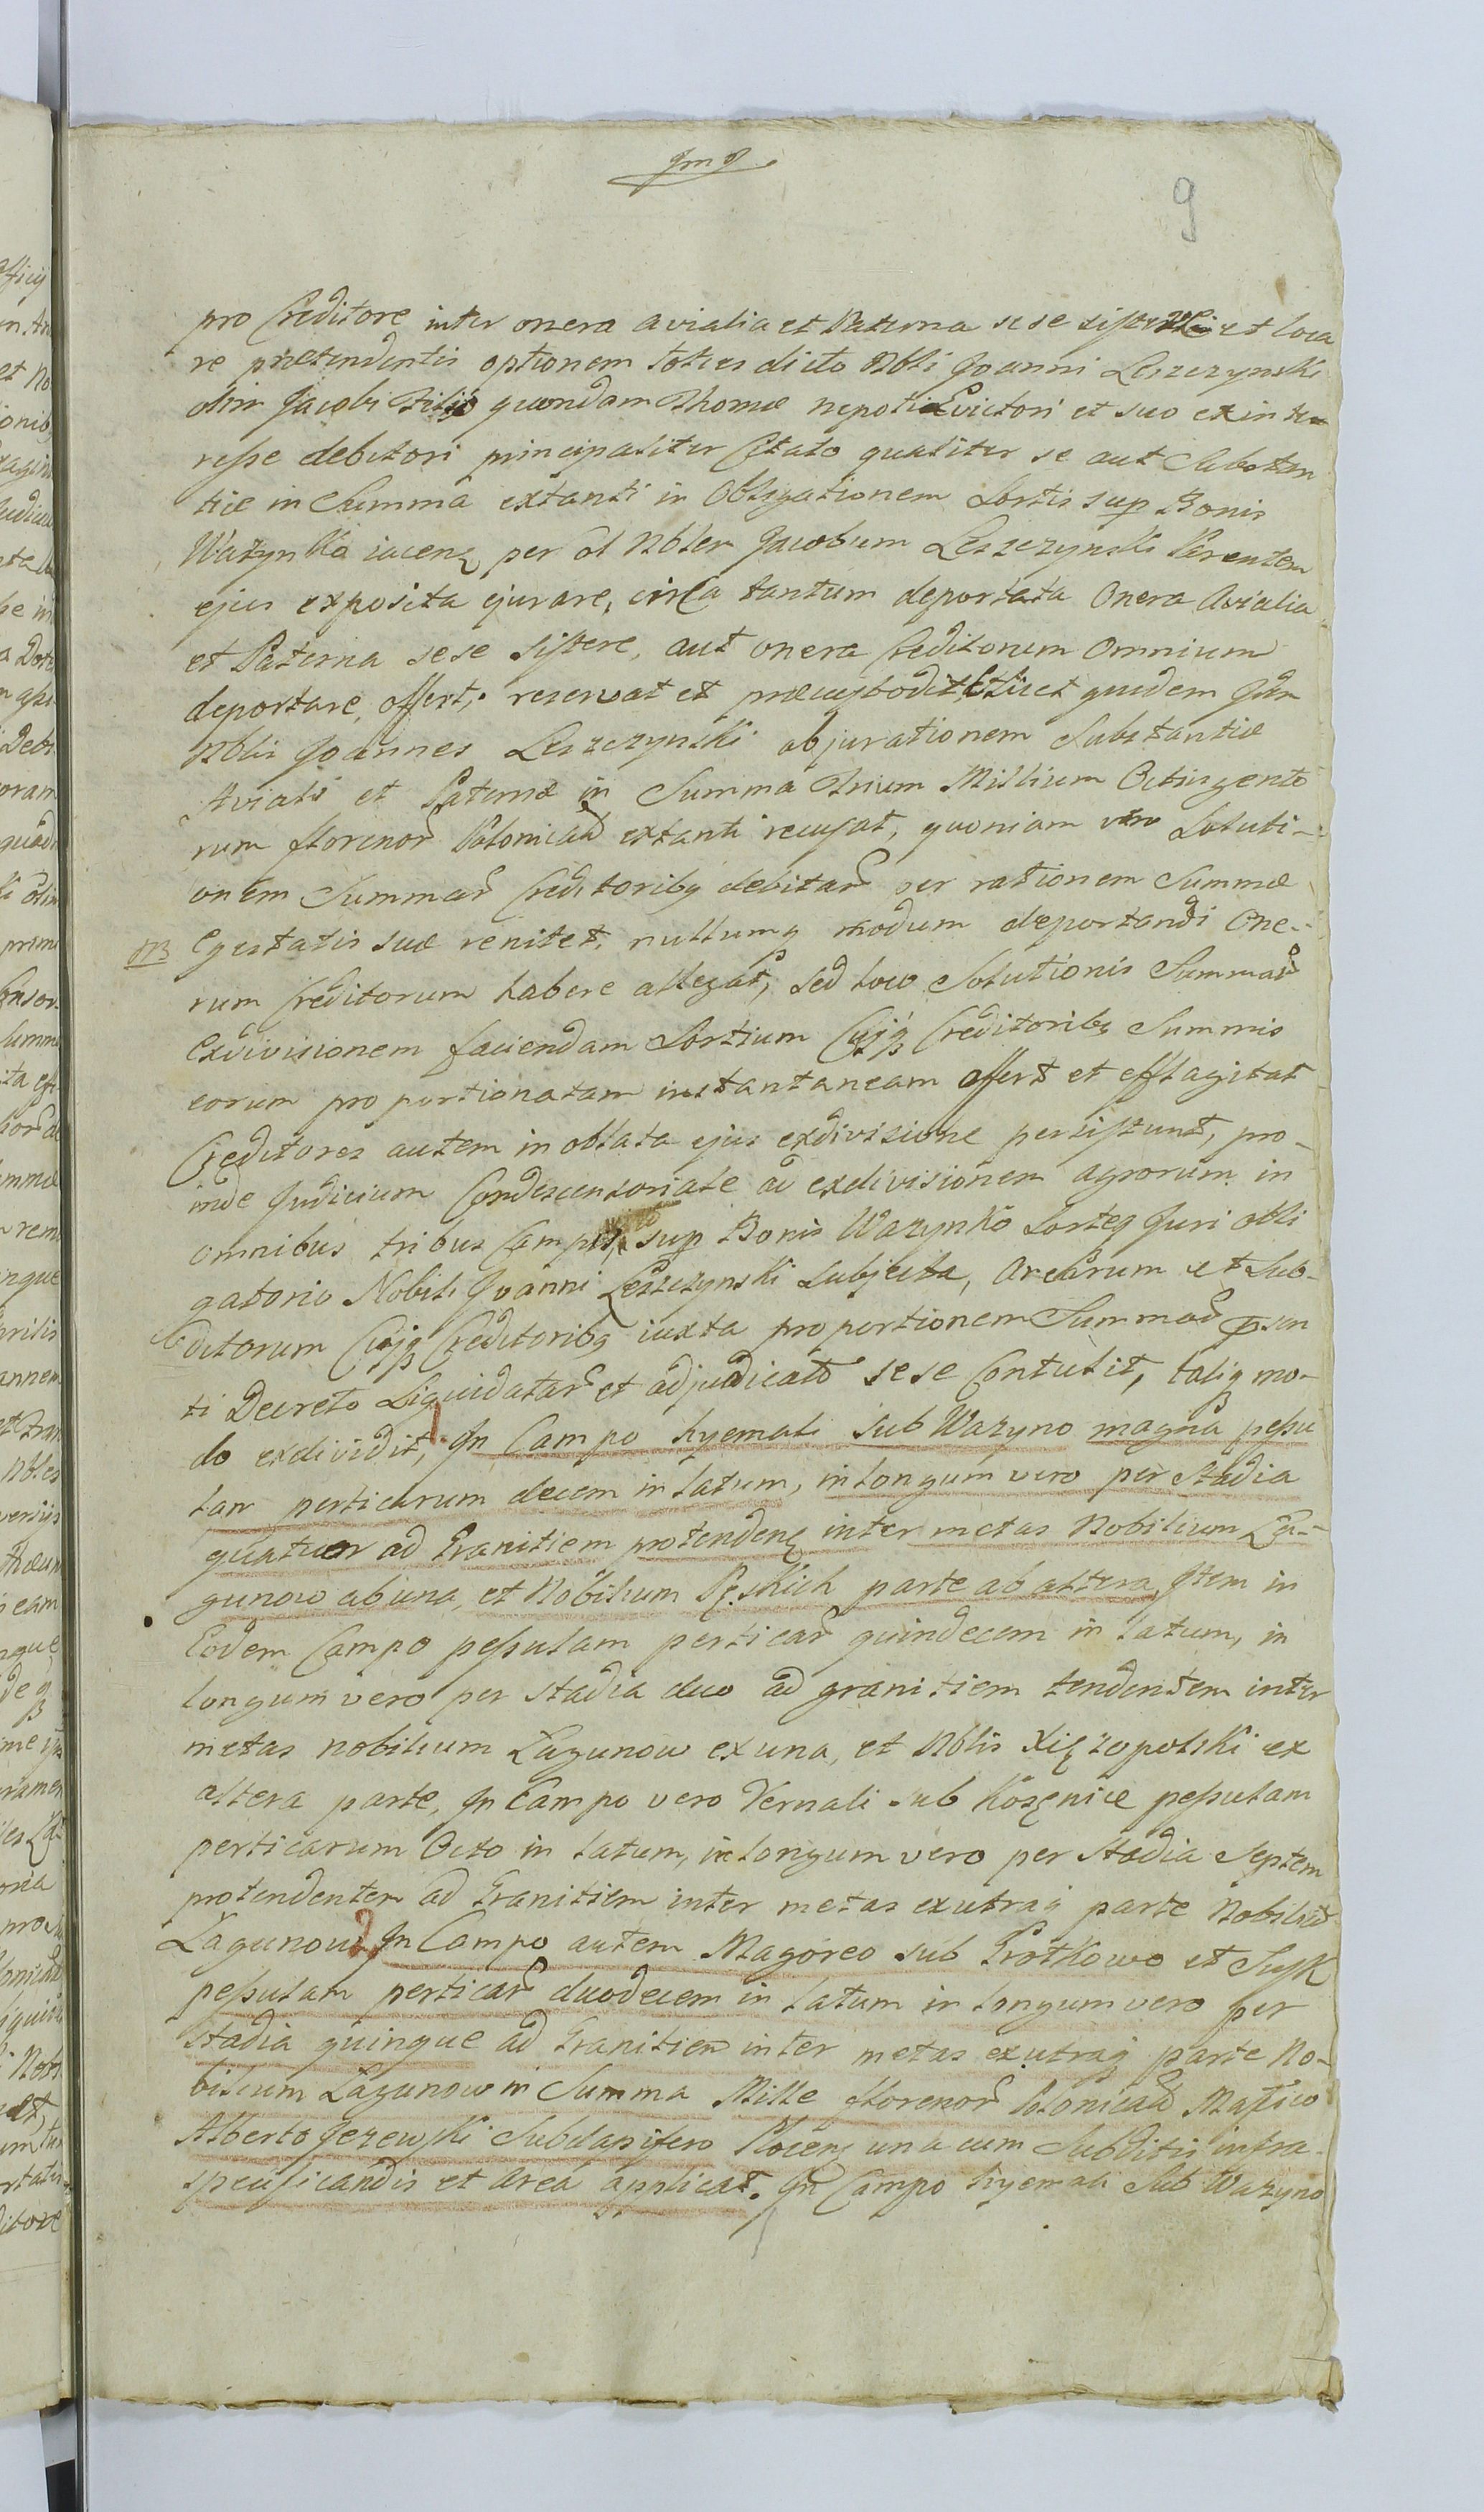 9
pro Creditore inter onera avialia et Paterna sese sistere et loca
re prætendentis optionem toties dicto Nbli Joanni Leszczynski
olim Jacobi Filio quondam Thomæ nepoti Evictori et suo ex inte
resse debitori principaliter Citato quatiter se aut Substan
tiæ in Summa extanti in Obligationem Sortis sup Bonis
Wazynko iacenę per ol Nblem Jacobum Leszczynski Parentem
ejus exposita ejurare, circa tantum deportata Onera Avialia
et Paterna sese Sistere, aut onera Creditorum Omnium
deportare, offert, reservat et præcustodit licet quidem Idm
Nblis Joannes Leszczynski abjurationem Substantiæ
Avialis et Paternæ in Summa Trium Millium Octingento
rum florenor Polonical extanti recusat, quoniam vero Soluti-
onem Summar Creditoribq debitar per rationem Summæ
NB Egestatis suæ renitet, nullumq modum deportandi One-
rum Creditorum habere allegat, sed loco Solutionis Summar
Exdivisionem faciendam Sortium Cujq Creditoribq Summis
eorum proportionatam instantaneam offert et efflagitat
Creditores autem in oblata ejus exdivisione persistunt, pro-
inde Judicium Condescensoriale ad exdivisionem agrorum in
omnibus tribus Campis, sup Bonis Wazynko Sorteq Juri obli
gatorio Nobili Joanni Leszczynski Subjecta, Arearum et Sub-
ditorum Cujq Creditoribq iuxta proportionem Summar psen
ti Decreto Liquidatar et adjudicato sese Contulit, taliq mo-
do exdividit, In Campo hyemali sub Wazyno magna pessu
lam perticarum decem in latum, in longum vero per Stadia
quatuor ad Granitiem protendenę inter metas Nobilium Ła-
gunow ab una, et Nobilium Pęskich parte ab altera, Item in
Eodem Campo pessulam perticar quindecem in latum, in
longum vero per stadia duo ad granitiem tendentem inter
metas nobilium Łagunow ex una, et Nblis Xięzopolski ex
altera parte, In Campo vero Vernali sub Kosęnice pessulam
perticarum Octo in latum, in longum vero per Stadia Septem
protendentem ad Granitiem inter metas ex utraq parte Nobiliu
Łagunow, In Campo autem Magoreo sub Grotkowo et Susk
pessulam perticar duodecem in latum in longum vero per
stadia quinque ad Granitiem inter metas ex utraq parte No-
bilium Łagunow in Summa Mille florenor Polonical Magfico
Alberto Jezewski Subdapifero Plocenę una cum Subditis infra-
specificandis et Area applicat. In Campo hyemali Sub Wazyno